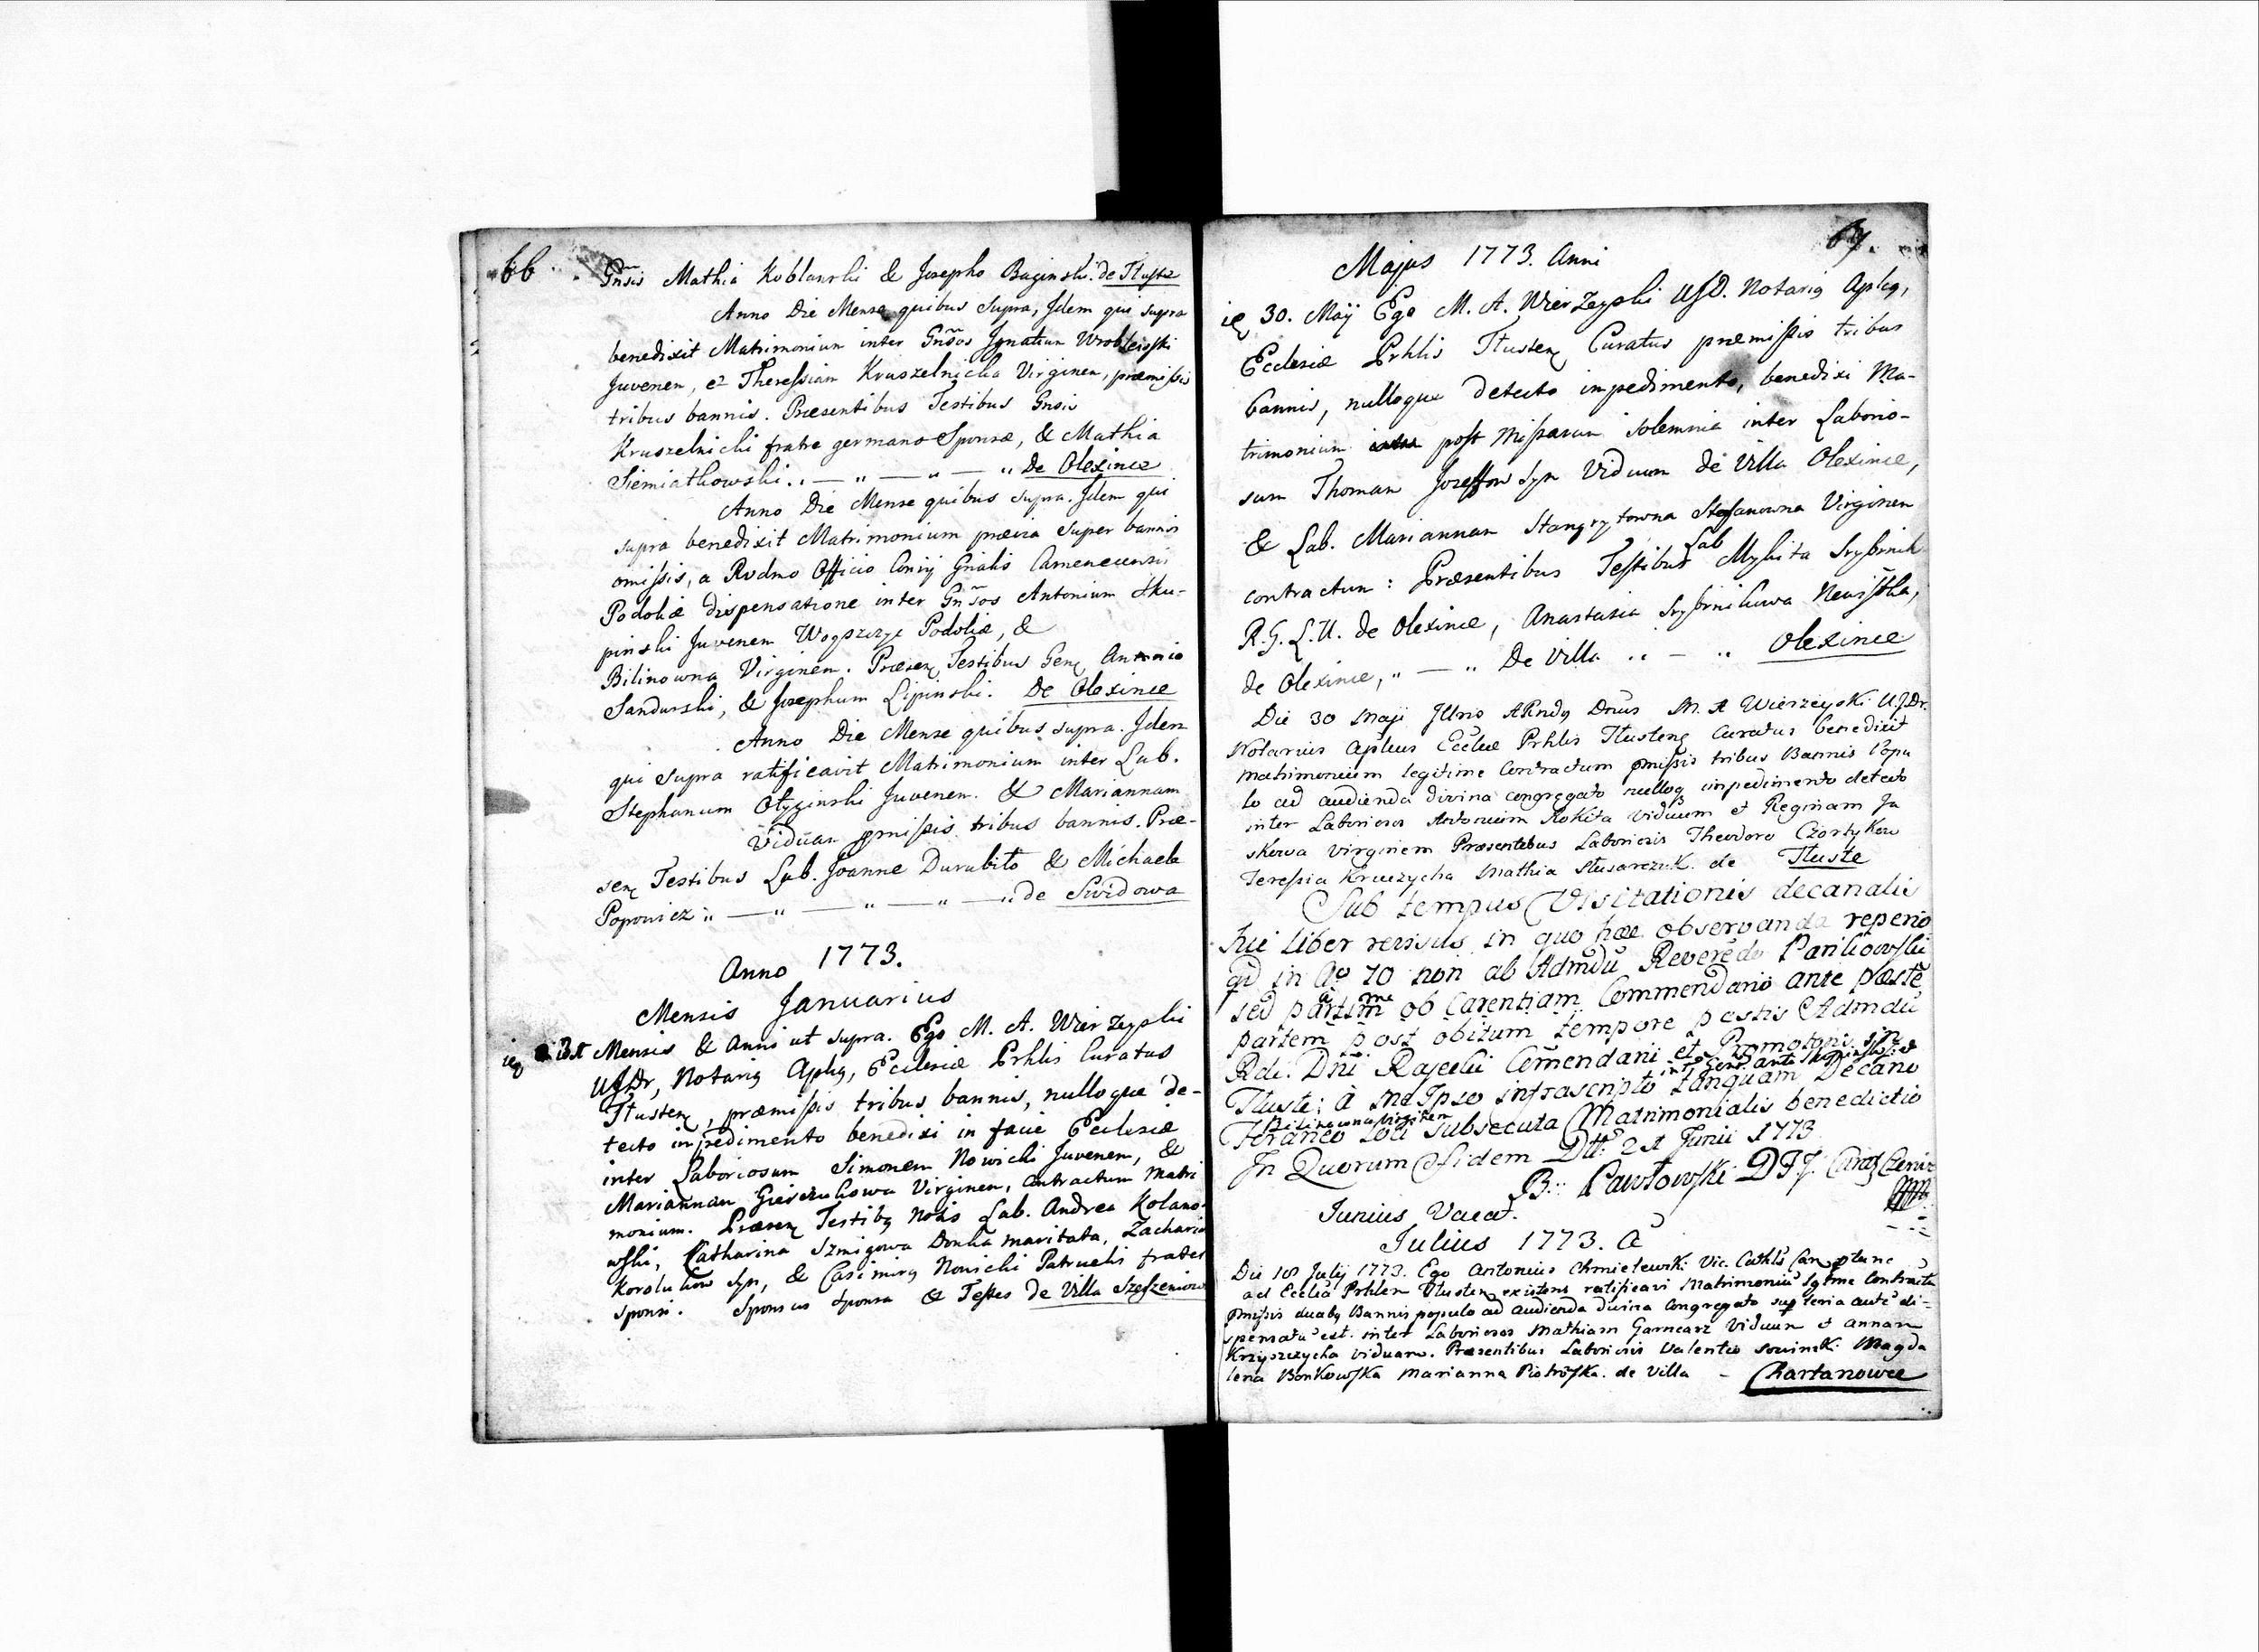 66
Gnsis Mathia Koblanski & Josepho Baginski. de Tłuste
Anno Die Mense quibus supra, Idem qui supra
benedixit Matrimonium inter Gnsos Ignatium Wroblewski
Juvenem, et Theressiam Kruszelnicka Virginem, præmissis
tribus bannis. Præsentibus Testibus Gnsis
Kruszelnicki fratre germano Sponsæ, & Mathia
Siemiatkowski. „ — „ — „ — „ De Olexince
Anno Die Mense quibus supra. Idem qui
supra benedixit Matrimonium prævia super bannis
omissis, a Rvdmo Officio Gnralis Camenecensis
Podoliæ dispensatione inter Gnsos Antonium Sku-
pinski Juvenem Podoliæ, &
Bilinowna Virginem. Præsen Testibus Gen Antonio
Sandurski, & Josephum Lipinski. De Olexince
Anno Die Mense quibus supra. Idem
qui supra ratificavit Matrimonium inter Lab.
Stephanum Juvenem. & Mariannam
Viduam pmissis tribus bannis. Præ-
sen Testibus Lab. Joanne Durabito & Michaele
Popowicz „ — „ — „ — „ — „ de Swidowa
Anno 1773.
Mensis Januarius
Mensis & Anni ut supra. Ego M. A. Wierzeyski
UJDr, Notari9 Aplic9, Ecclesiæ Prhlis Curatus
Tłusten, præmissis tribus bannis, nulloque de-
tecto impedimento benedixi in facie Ecclesiæ
inter Laboriosum Simonem Nowicki Juvenem, &
Mariannam Virginem, contractum Matri
monium. Præsen Testib9 Lab. Andrea Kolano-
wski, Catharina Szmigowa Donka maritata, Zacharia
Korolukow Syn, & Casimir9 Nowicki Patruelis frater
Sponsi. Sponsus Sponsa & Testes de Villa
67.
Majus 1773. Anni
30. Maÿ Ego M. A. Wierzeyski UJD. Notari9 Aplic9,
Ecclesiæ Prhlis Tłusten Curatus præmissis tribus
bannis, nulloque detecto impedimento, benedixi Ma-
trimonium post Missarum solemnia inter Laborio-
sum Thomam Jozeffow Syn Viduum de Villa Olexince,
& Lab. Mariannam Stangrytowna Stefanowna Virginem
contractum: Præsentibus Testibus Lab Mykita Srybnik
R.G.L.U. de Olexince, Anastasia Srybnikowa
de Olexince, „ — „ De Villa „ — „ Olexince
Die 30 Maji Illno ARnd9 Dnus M. A Wierzeyski U.J.Dr.
Notarius Aplcus Ecclæ Prhlis Tłusten Curatus benedixit
Matrimonium legitime Contractum pmissis tribus Bannis Popu
lo ad audienda divina congregato nulloq impedimento detecto
inter Laboriosos Antonium Rokita viduum et Reginam Ja
skowa virginem Præsentibus Laboriosis Theodoro Czortykow
Teressia Mathia Slusarczuk. de Tłuste
Sub tempus Visitationis decanalis
hic Liber revisus in quo hæc observanda reperio
qd in Ao 70 non ab Admdu Reveredo Pawlikowski
sed partim ob Carentiam Commendario ante pæste
partem post obitum tempore pestis Admdu
Rdi. Dni Commendarii et Promotoris sin
Tłuste; à me Ipso infrascripto tanquam Decano
Foraneo Loci subsecuta Matrimonialis benedictio
Bilinowna Virginem
In Quorum fidem Dtt 21 Junii 1773
B: Pawłowski DFJ.
Junius Vacat.
Julius 1773. A
Die 18 July 1773. Ego Antonius Chmielewski Vic. Cathlis
ad Eccliã Prhlem Tłusten existens ratificavi Matrimoniu Contractu
pmissis duab9 Bannis populo ad audienda divina Congregato sup teria aute di-
spensatu est. inter Laboriosos Mathiam Garncarz Viduum et Annam
Krzyszczycha viduam. Præsentibus Laboriosis Valentio Sowinski Magda
lena Bonkowska Marianna Piotroska. de Villa - Chartanowce